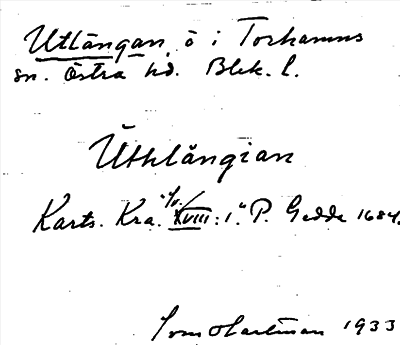 Utlängan, ö i Torhamns
sn. Östra hd. Blek. l.
Uthlängian
Karts. Kra. XVIII: 1. P. Gedda 1684.
Hartman 1933